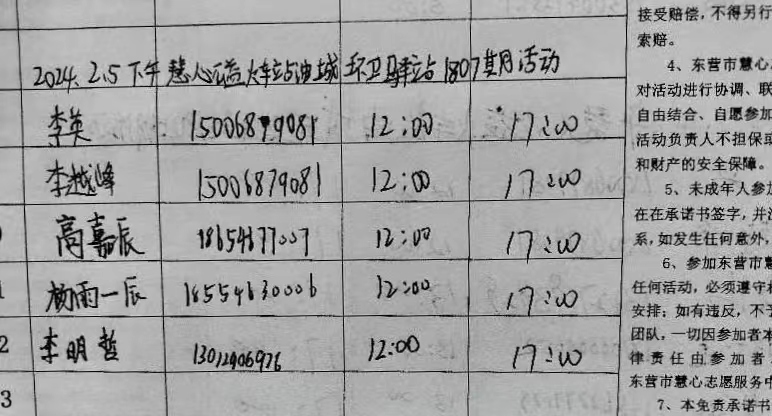 2024.2.5下午 慧心公益火车站油城环卫驿站1807期活动
李英 15006879081 12:00 17:00
李越峰 15006879081 12:00 17:00
高嘉辰 18654677007 12:00 17:00
杨雨一辰 18554630006 12:00 17:00
2 李明哲 13012906926 12:00 17:00
3
接受赔偿，不得另行
索赔。
4、东营市慧心
对活动进行协调、联
自由结合、自愿参加
活动负责人不担保或
和财产的安全保障。
5、未成年人参加
在在承诺书签字，并
系，如发生任何意外，
6、参加东营市慧
任何活动，必须遵守
安排；如有违反，不
团队，一切因参加者本
律责任由参加者
东营市慧心志愿服务中
7、本免责承诺书